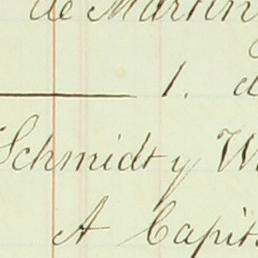 de Martin
1. d
Schmidt y W
A Capit